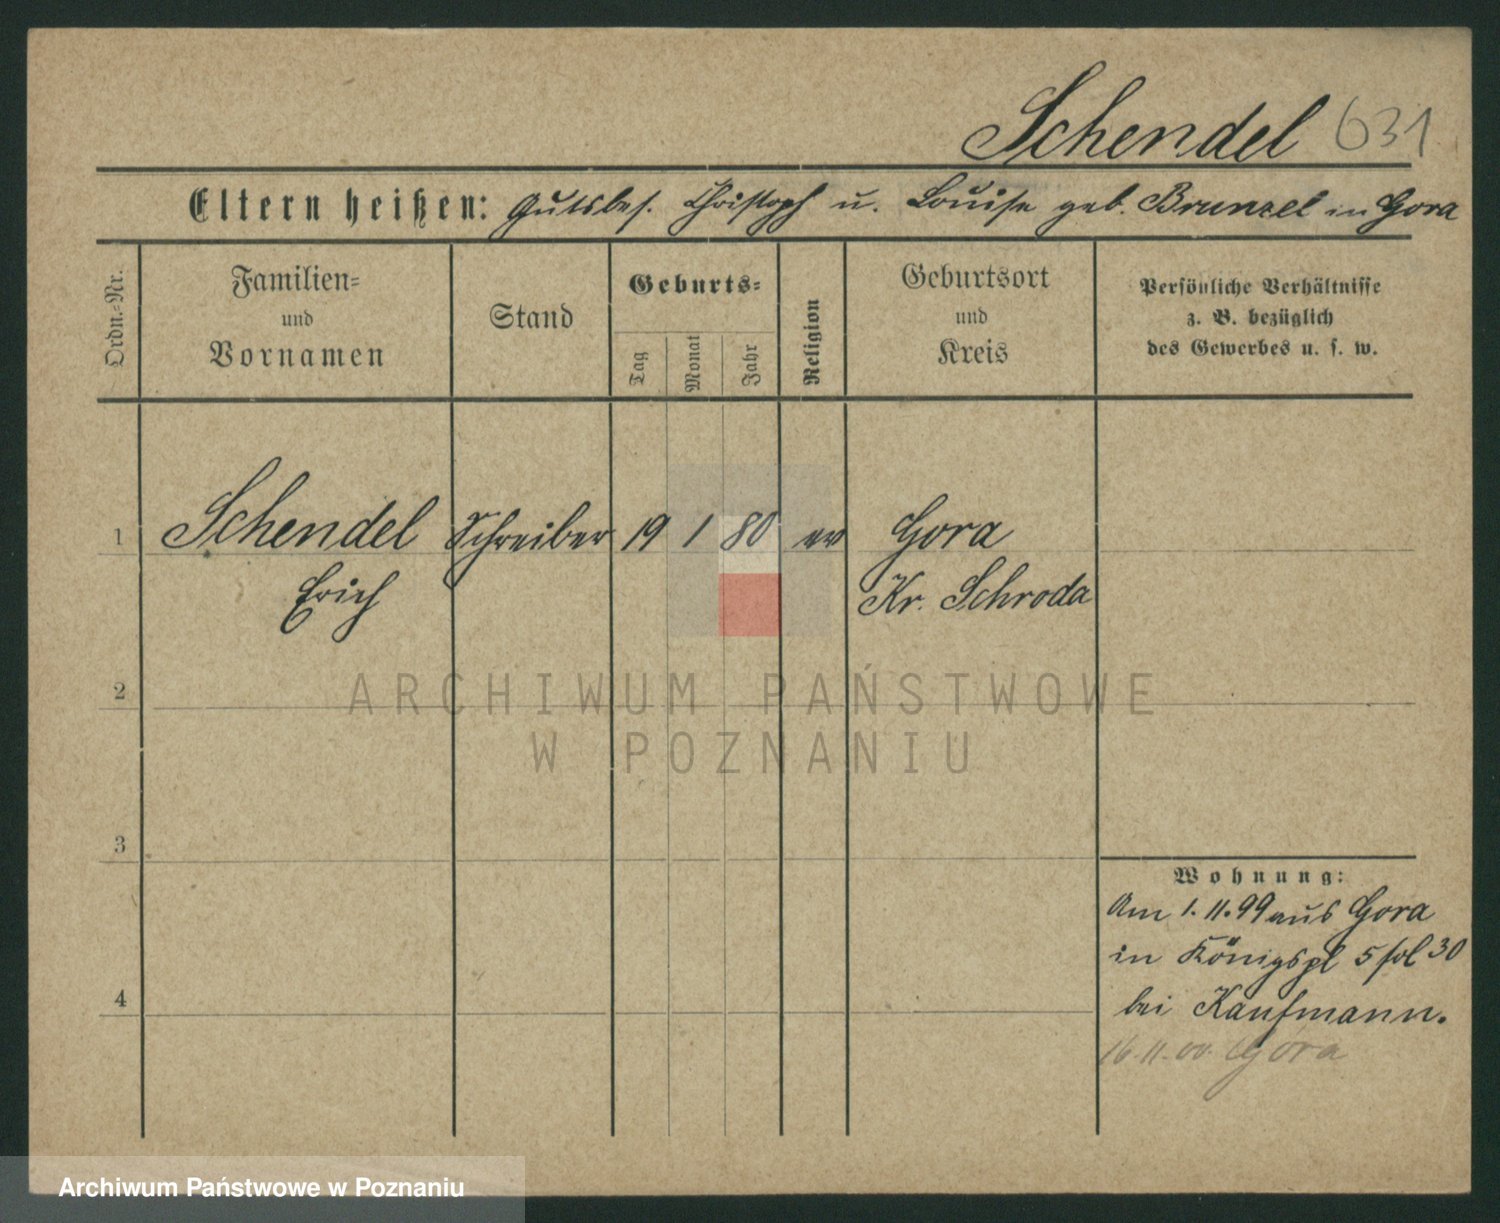 Schendel 631
Eltern heißen: Gutsbes. Christoph u. Louise geb. Brunzel in Gora
Ordn.-Nr.
Familien-
und
Vornamen
Stand
Geburts-
Tag
Monat
Jahr
Religion
Geburtsort
und
Kreis
Persönliche Verhältnisse
z. B. bezüglich
des Gewerbes u. s. w.
1 Schendel Schreiber 19 1 80 ev Gora
Erich Kr. Schroda
2
ARCHIWUM PAŃSTWOWE
W POZNANIU
3
Wohnung:
Am 1.11.99 aus Gora
in Königspl 5 fol 30
4
bei Kaufmann.
16.11.00. Gora
Archiwum Państwowe w Poznaniu